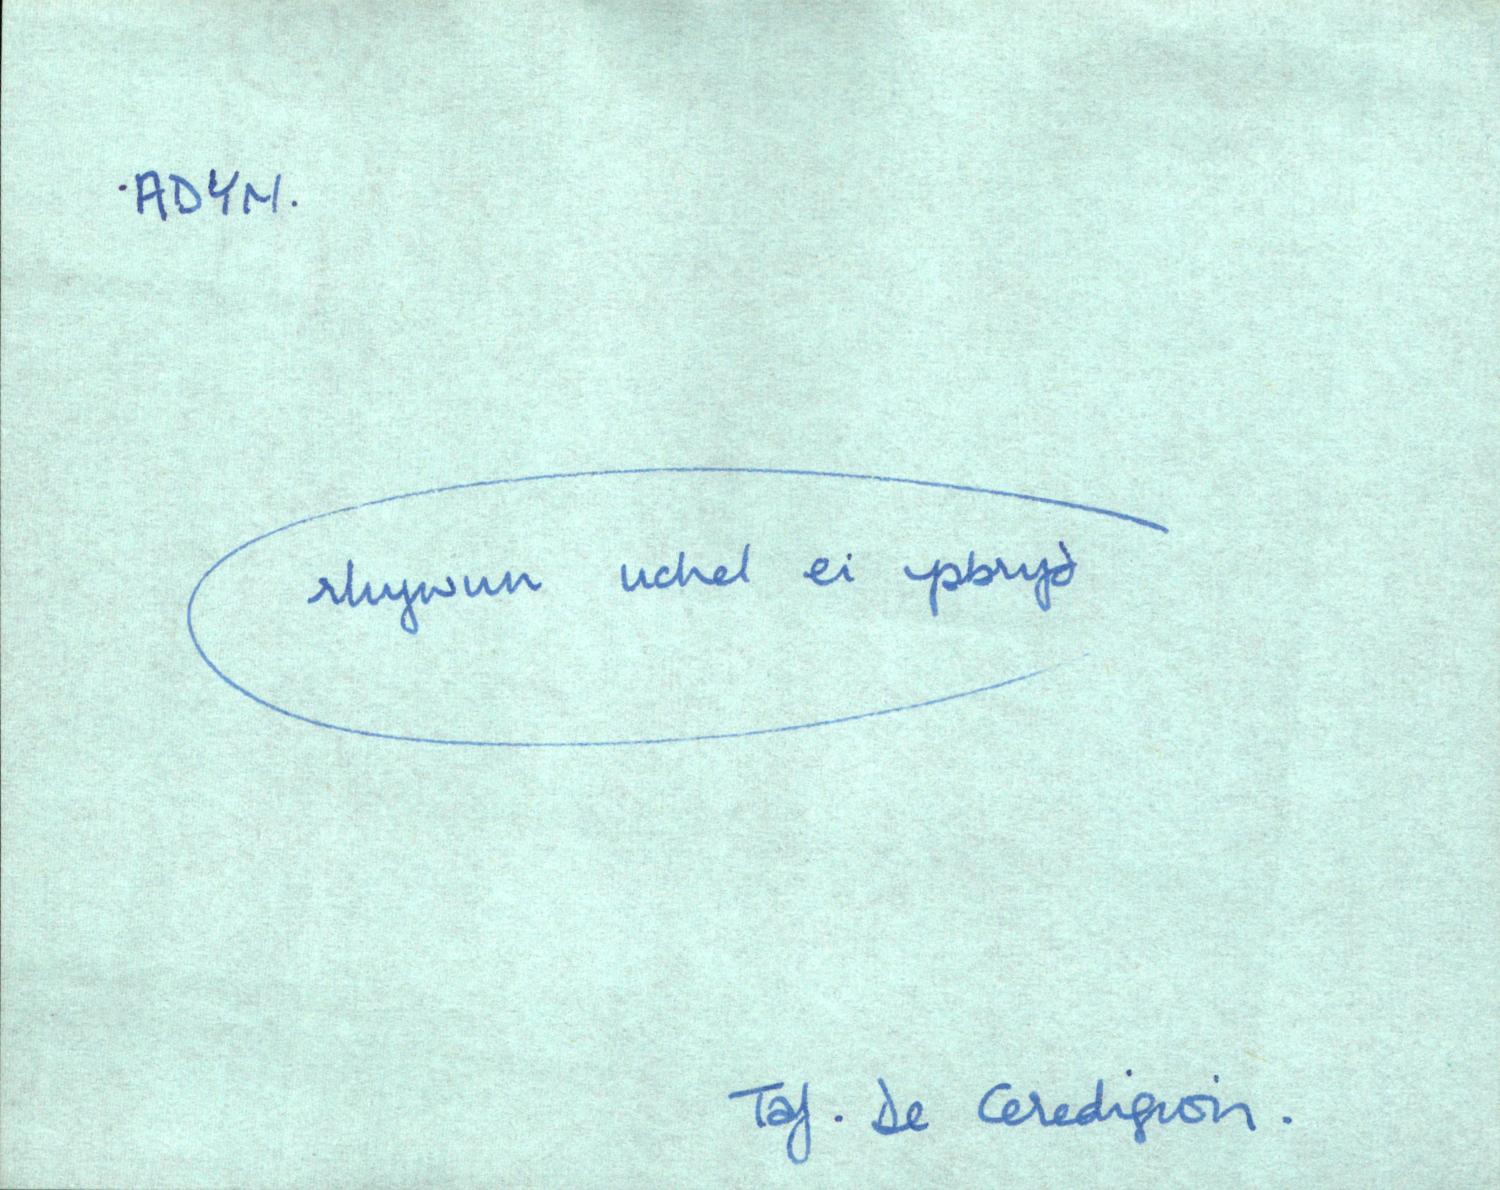 ADYN.
rhywun uchel ei ysbryd
Taf. De Ceredigion.